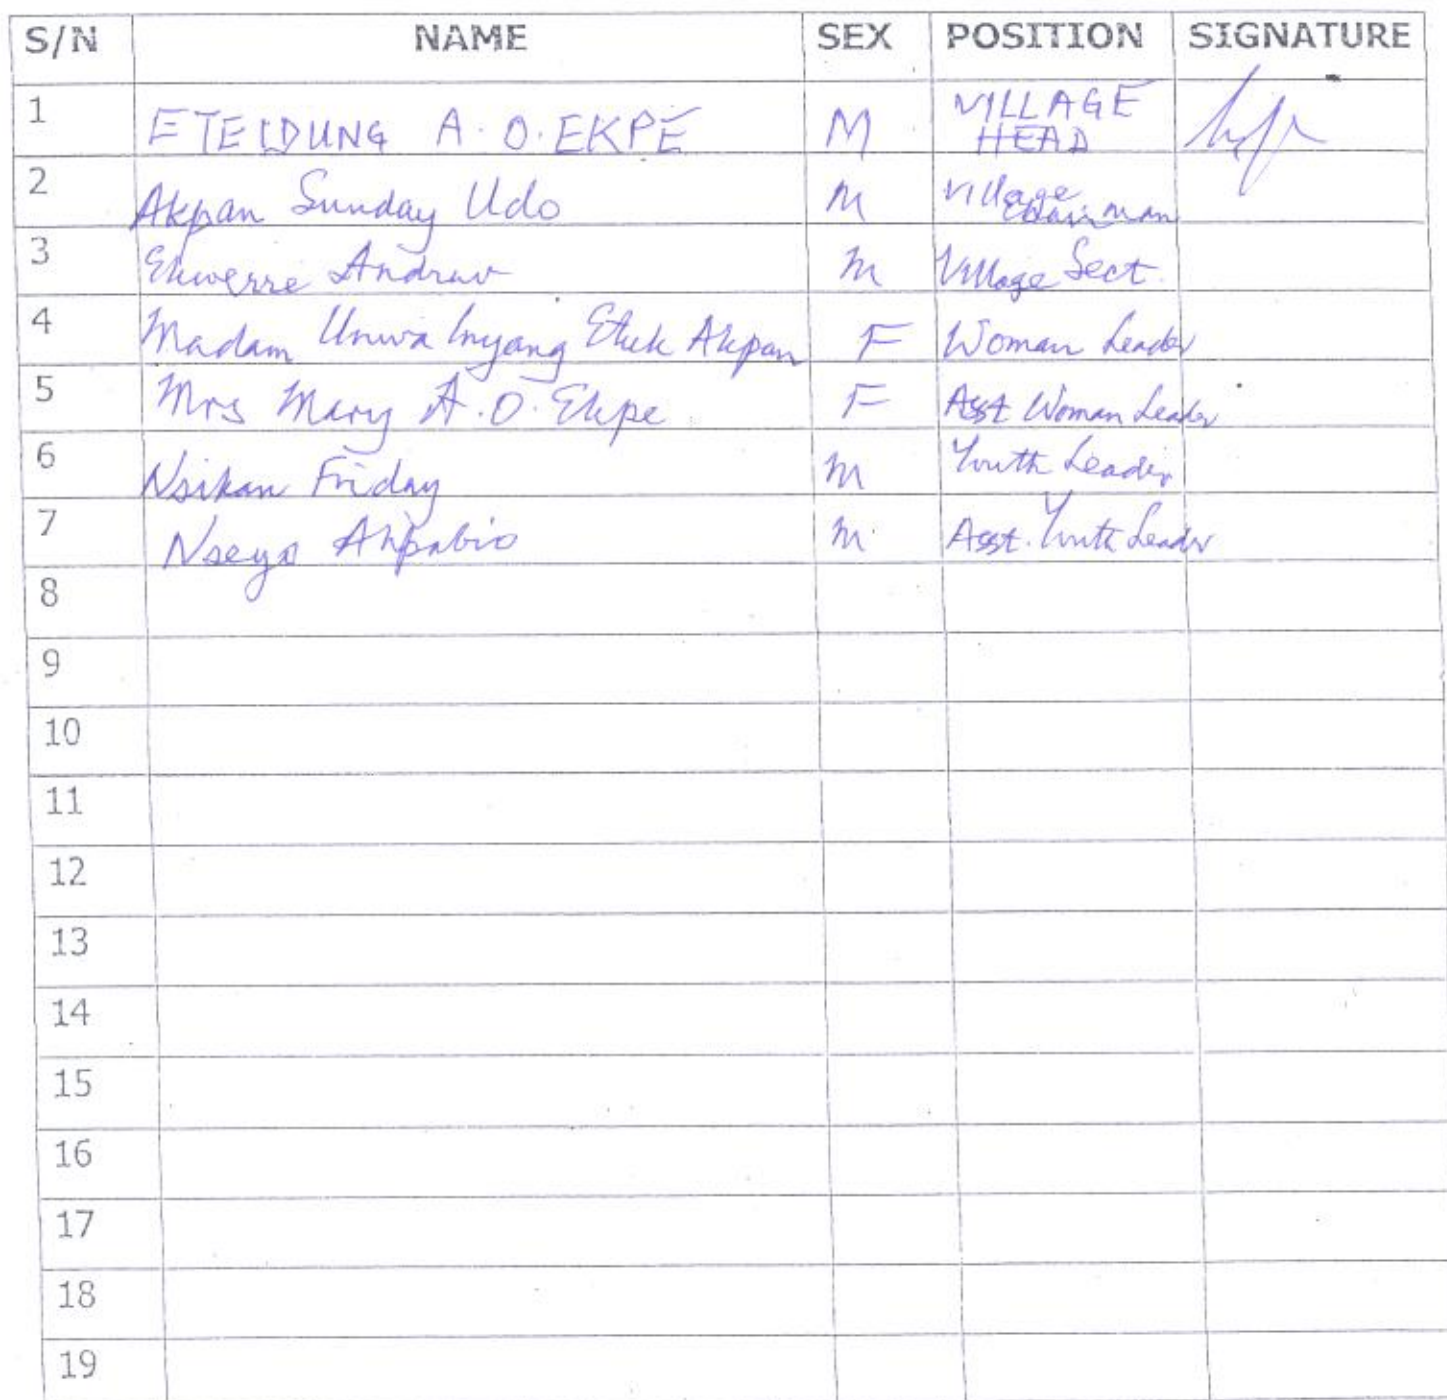 S/N NAME SEX POSITION SIGNATURE
1 ETEIDUNG A. O. EKPE M VILLAGE HEAD
2 Akpan Sunday Udo M Village Chairman
3 Ekwerre Andraw M Village Sect.
4 Madam Unwa Inyang Etuk Akpan F Woman Leader
5 Mrs Mary A. O. Ekpe F Asst Woman Leader
6 Nsikan Friday M Youth Leader
7 Nseyo Akpabio M. Asst. Youth Leader
8
9
10
11
12
13
14
15
16
17
18
19